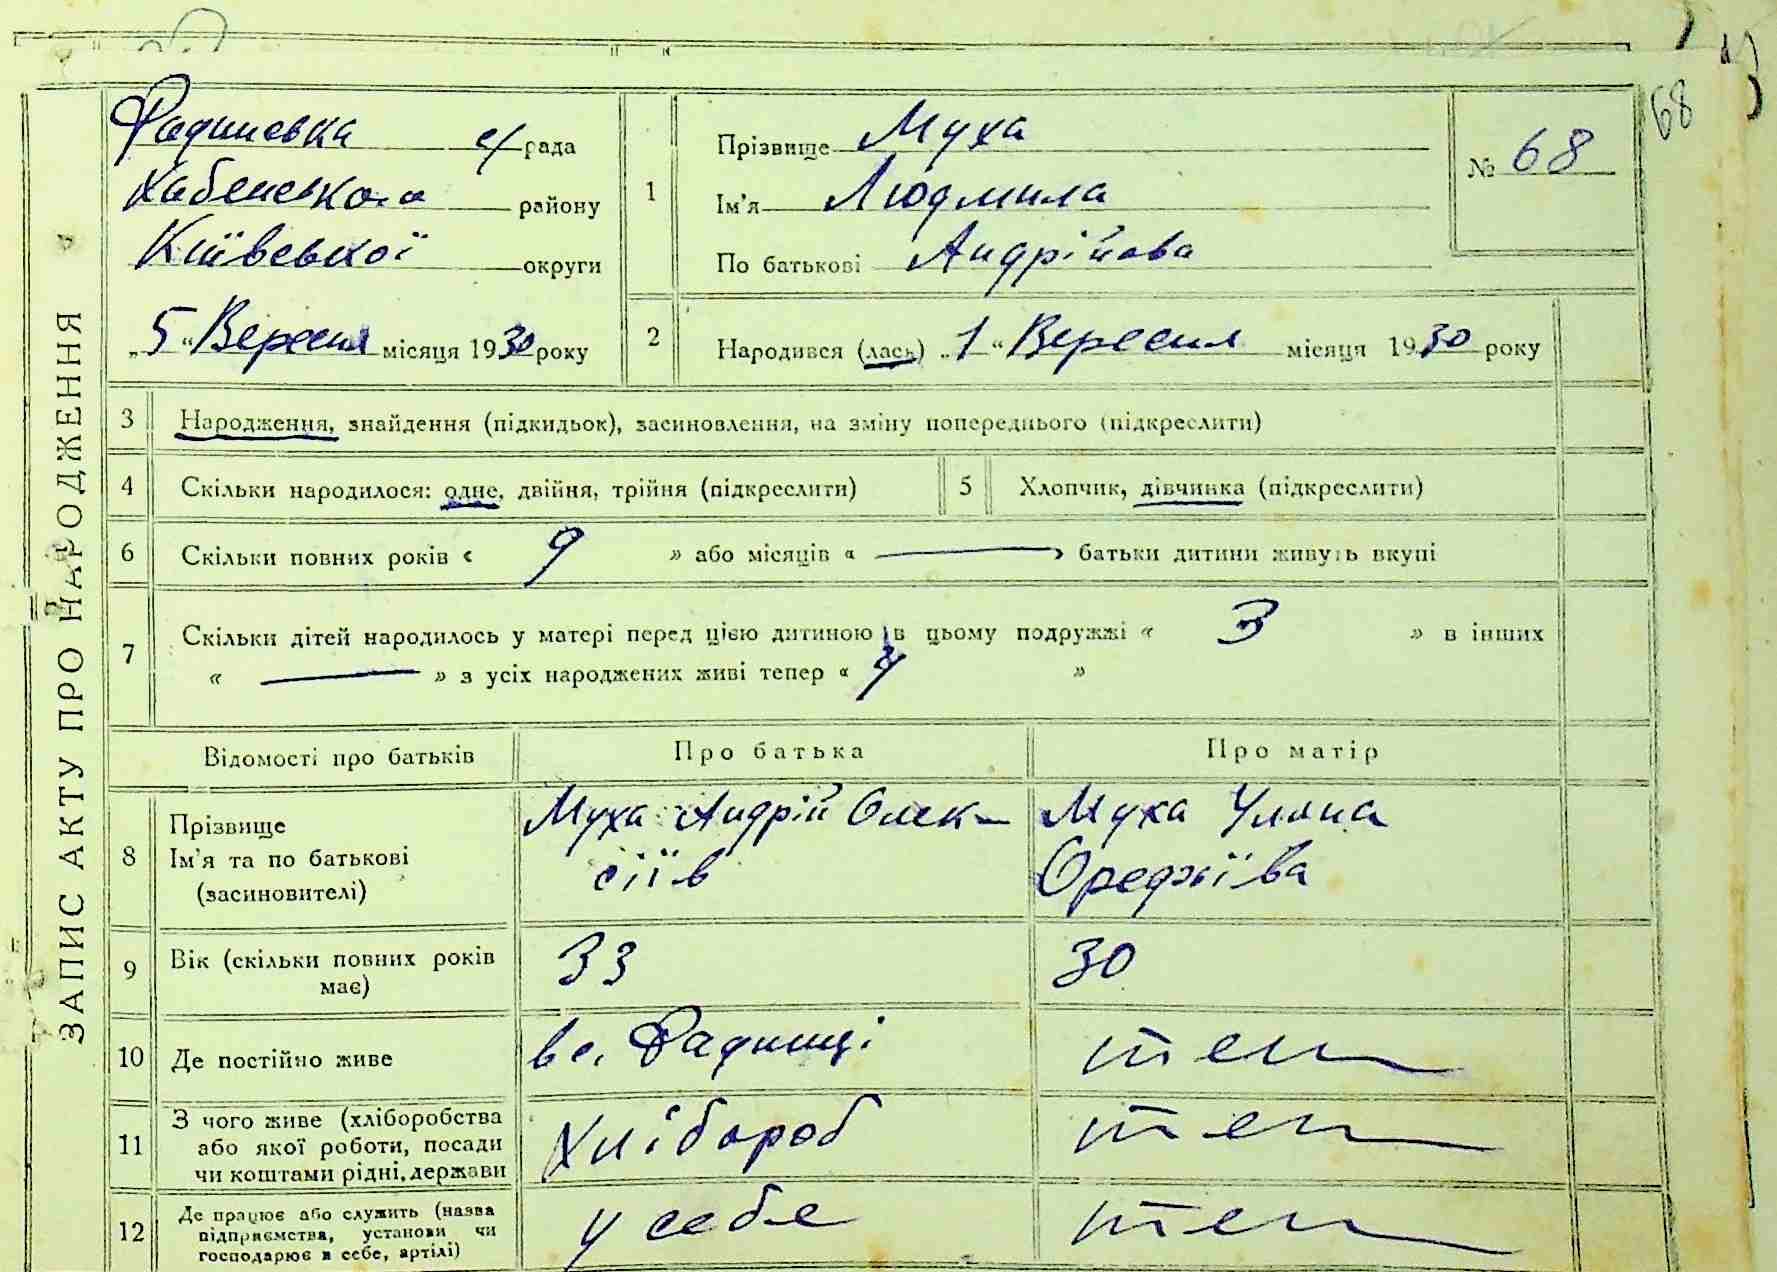 68
ЗАПИС АКТУ ПРО НАРОДЖЕННЯ
с/рада
Хабенського району
Київської округи
„5“ Вересня місяця 1930 року
1
Прізвище Муха
Ім'я Людмила
По батькові Андрійова
№ 68
2
Народився (лась) „1“ Вересня місяця 1930 року
3 Народження, знайдення (підкидьок), засиновлення, на зміну попереднього (підкреслити)
4 Скільки народилося: одне, двійня, трійня (підкреслити)
5 Хлопчик, дівчинка (підкреслити)
6 Скільки повних років « 9 » або місяців « — » батьки дитини живуть вкупі
7 Скільки дітей народилось у матері перед цією дитиною в цьому подружжі « 3 » в інших
« — » з усіх народжених живі тепер « 4 »
Відомості про батьків Про батька Про матір
8 Прізвище
Ім'я та по батькові
(засиновителі)
Муха Андрій Олек-
сіїв
Муха Уляна
9 Вік (скільки повних років
має)
33 30
10 Де постійно живе в с. теж
11 З чого живе (хліборобства
або якої роботи, посади
чи коштами рідні, держави
Хлібороб теж
12 Де працює або служить (назва
підприємства, установи чи
господарює в себе, артілі)
у себе теж